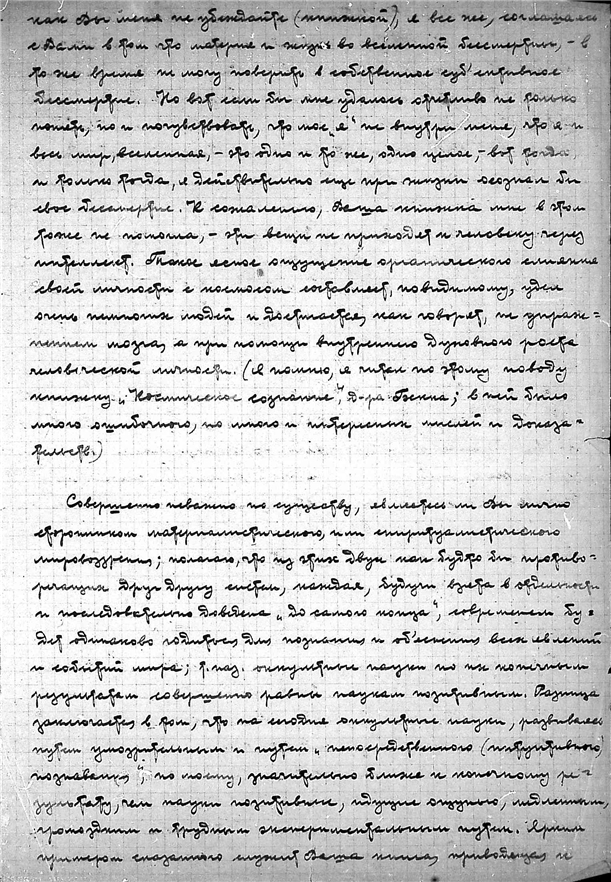 как Вы меня не убеждайте (книжкой), я все же, соглашаясь
с Вами в том что материя и жизнь во вселенной бессмертны, – в
то же время не могу поверить в собственное суб'ективное
бессмертие. Но вот если бы мне удалось отчетливо не только
понять, но и почувствовать, что мое „я“ не внутри меня, что я и
весь мир, вселенная, – это одно и то же, одно целое, – вот тогда,
и только тогда, я действительно еще при жизни осознал бы
свое бессмертие. К сожалению, Ваша книжка мне в этом
тоже не помогла, – эти вещи не приходят к человеку через
интеллект. Такое ясное ощущение органического слияния
своей личности с космосом составляет, повидимому, удел
очень немногих людей и достигается, как говорят, не упраж-
нением мозга, а при помощи внутреннего духовного роста
человеческой личности. (Я помню, я читал по этому поводу
книжку „Космическое сознание“, д-ра Бекка; в ней было
много ошибочного, но много и интересных мыслей и доказа-
тельств.)
Совершенно неважно по существу, являетесь ли Вы лично
сторонником материалистического, или спиритуалистического
мировоззрения; полагаю, что из этих двух как будто бы противо-
речащих друг другу систем, каждая, будучи взята в отдельности
и последовательно доведена „до самого конца“, современем бу-
дет одинаково годиться для познания и об'яснения всех явлений
и событий мира; т. наз. оккультные науки по их конечным
результатам совершенно равны наукам позитивным. Разница
заключается в том, что на сегодня оккультные науки, развиваясь
путем умозрительным и путем „непосредственного (интуитивного)
познавания“, по моему, значительно ближе к конечному ре-
зультату, чем науки позитивные, идущие ощупью, медленным,
громоздким и трудным экспериментальным путем. Ярким
примером сказанного служит Ваша книга, приводящая к